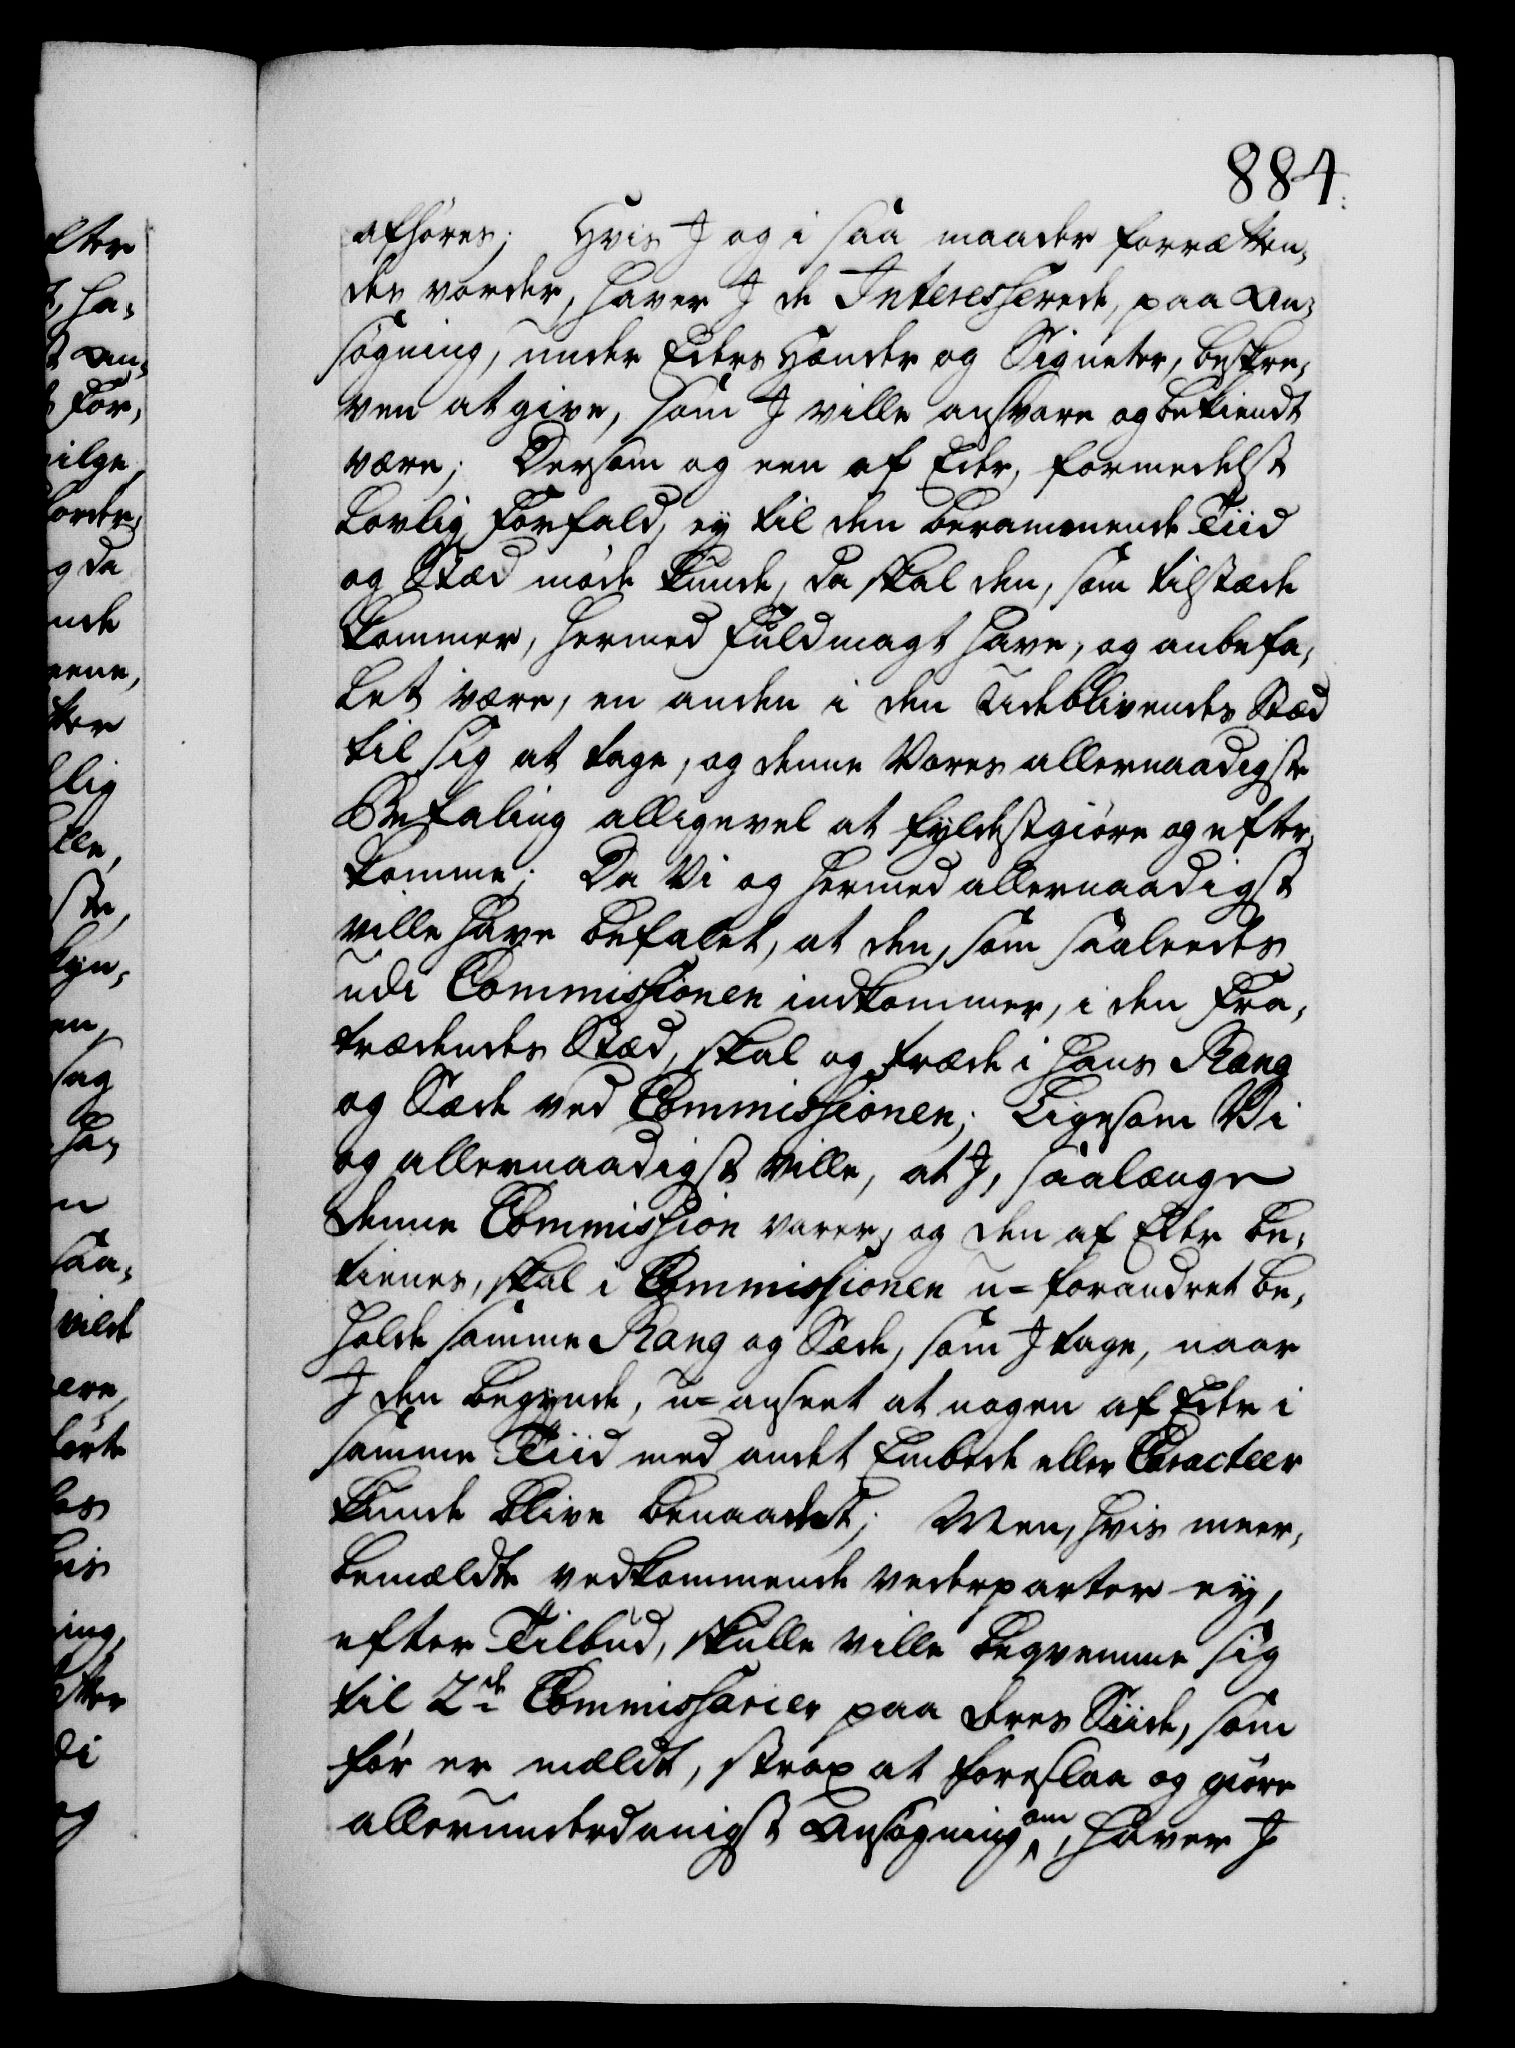 884.
afhøres; Hvis I og i saa maader forretten-
des vorder, haver I de Interesserede, paa An-
søgning, under Eders Hænder og Signeter, beskre-
ven at give, som I ville ansvare og bekiendt
være; Dersom og een af Eder, formedelst
Lovlig Forfald, ey til den berammende Tiid
og Stæd møde kunde, da skal den, som tilstæde
kommer, hermed Fuldmagt have, og anbefa-
let være, en anden i den Udeblivendes Stæd
til sig at tage, og denne Vores allernaadigste
Befaling alligevel at fyldestgiøre og efter-
komme; Da Vi og hermed allernaadigst
ville have befalet, at den, som saaledes
udi Commissionen indkommer, i den Fra-
trædendes Stæd, skal og træde i hans Rang
og Sæde ved Commissionen; Ligesom Vi
og allernaadigst ville, at I, saalænge
denne Commission varer, og den af Eder be-
tienes, skal i Commissionen u-forandret be-
holde samme Rang og Sæde, som I tage, naar
I den begynde, u-anseet at nogen af Eder i
samme Tiid med andet Embede eller Caracteer
kunde blive benaadet; Men, hvis meer-
bemældte vedkommende vederparter ey,
efter Tilbud, skulle ville beqvemme sig
til 2de Commissarier paa deres Siide, som
før er mældt, strax at foreslaa og giøre
allerunderdanigst Ansøgning om, haver I
efter
, ha-
t An-
s For-
vilge,
vorder,
og da
nde
eene,
ster
llig
ille,
ste,
kyn-
en,
sag
ha-
n
saa-
vildt
ere,
førte
les
his
ing,
etter
di
og